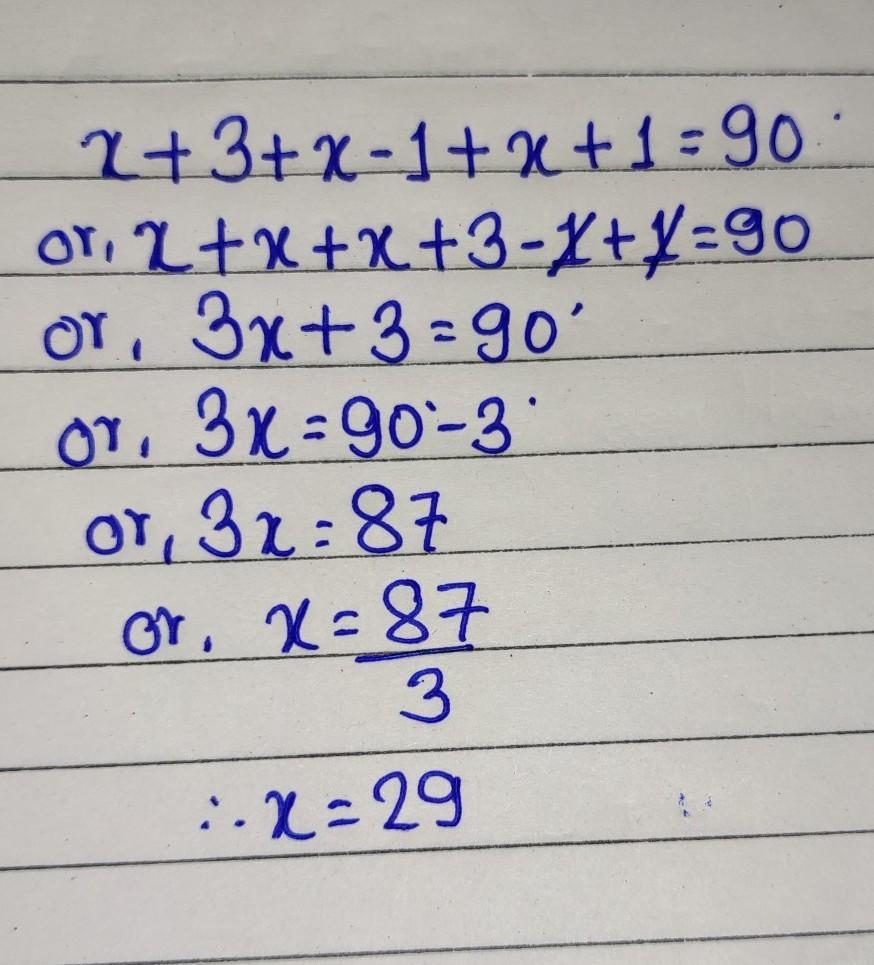 x+3+x-1+x+1=90
or, x+x+x+3-1+1=90
or, 3x+3=90
or, 3x=90-3
or, 3x=87
or, x=87/3
∴x=29